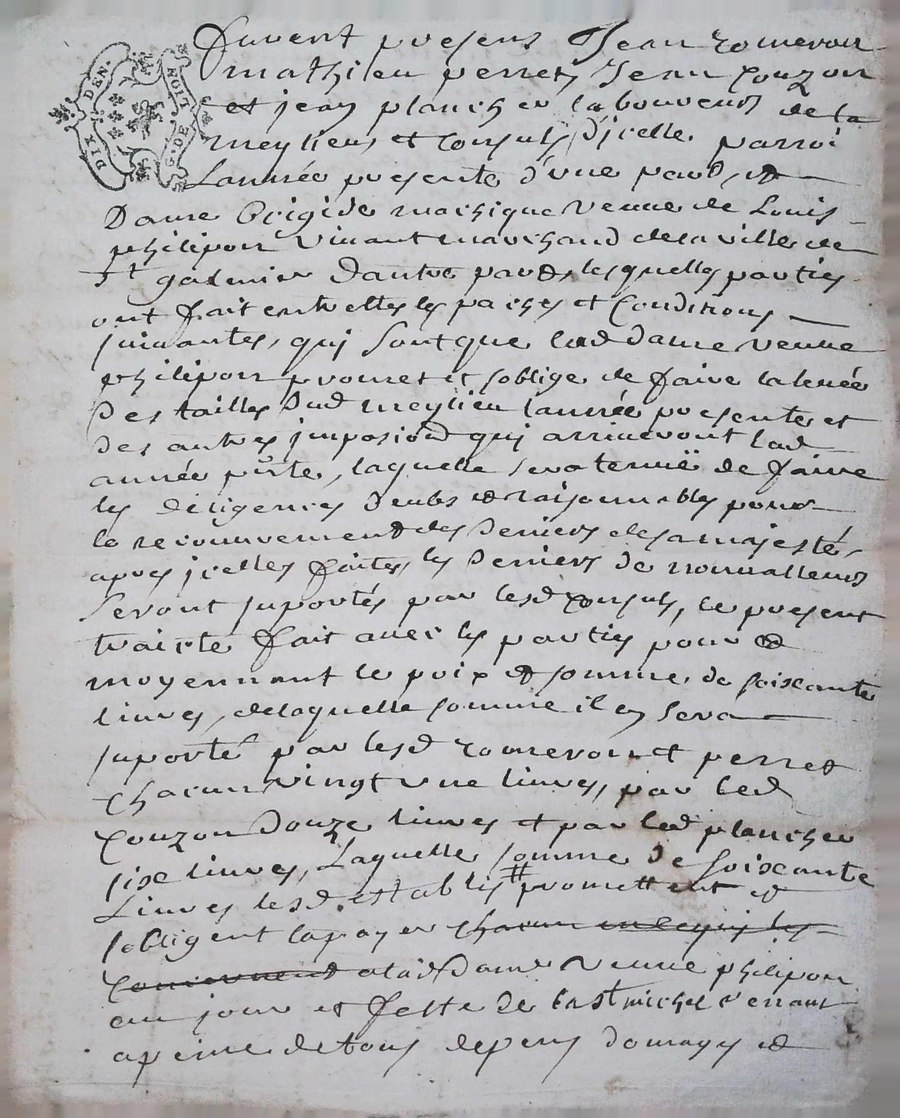 DIX DEN.
G. DE
NOIT
furent presens Jean romeron
mathieu perret, Jean Couzon
et jean plancher laboureurs de la
meylieu et Consuls d'jcelle parroi
Lannée presente d'une part, et
Dame Brigide machique veuve de Louis
philipon vivant marchand de la ville de
st galmier dautre part, lesquelles parties
ont fait entre elles les paches et Conditions
suivantes, qui sont que lad dame veuve
philipon promet et soblige de faire la levée
Des tailles dud meylieu lannée presente et
des autres imposions qui arriveront lad
année pnte, laquelle sera tenuë de faire
les diligences deubs et raisonnables pour
le recouvrement des deniers de sa majesté,
apres jcelles faites, les deniers de nonvalleurs
seront suportés par lesd Consuls, le present
traicté fait avec les parties pour et
moyennant le prix et somme de soixante
livres, de laquelle somme il en sera
suporté par lesd romeron et perret
chacun vingt une livres, par led
Couzon douze livres et par led plancher
sixe livres, Laquelle somme de soixante
Livres lesd. establis # promettent et
sobligent la payer chacun en ce qui les
concernent a lad Dame veuve philipon
au jour et feste de la st michel venant
a peine de tous depens domages et